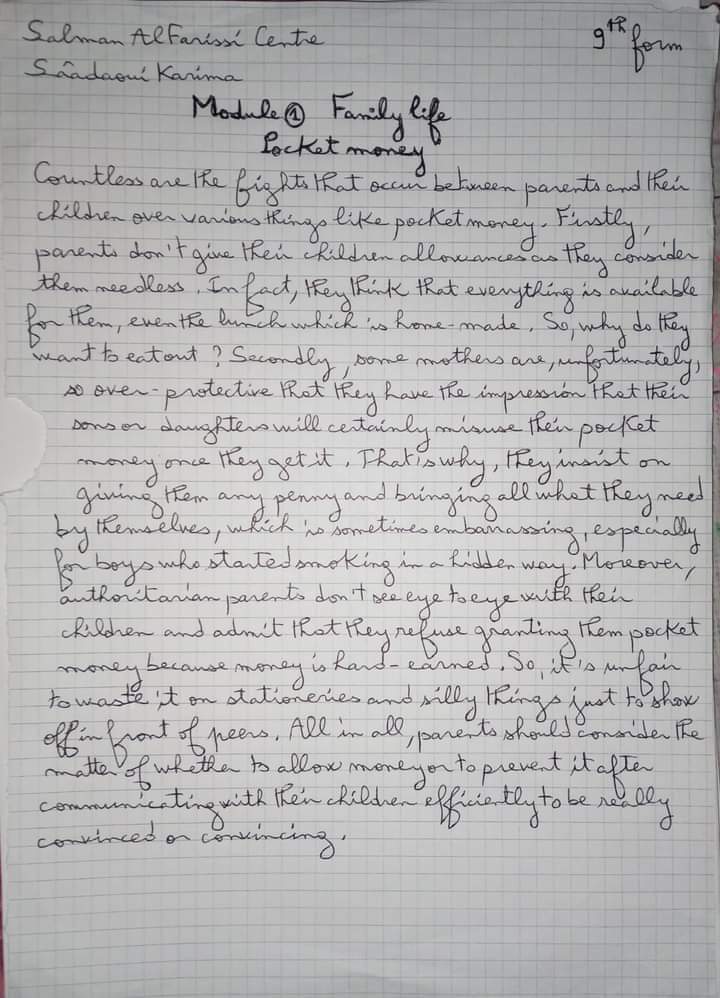 Salman AlFarissi Centre
9th form
Sâadaoui Karima
Module 1 Family life
Pocket money
Countless are the fights that occur between parents and their
children over various things like pocket money. Firstly,
parents don't give their children allowances as they consider
them needless. In fact, they think that everything is available
for them, even the lunch which is home-made. So, why do they
want to eat out? Secondly, some mothers are, unfortunately,
so over-protective that they have the impression that their
sons or daughters will certainly misuse their pocket
money once they get it. That's why, they insist on
giving them any penny and bringing all what they need
by themselves, which is sometimes embarrassing, especially
for boys who started smoking in a hidden way. Moreover,
authoritarian parents don't see eye to eye with their
children and admit that they refuse granting them pocket
money because money is hard-earned. So, it's unfair
to waste it on stationeries and silly things just to show
off in front of peers. All in all, parents should consider the
matter of whether to allow money or to prevent it after
communicating with their children efficiently to be really
convinced or convincing.